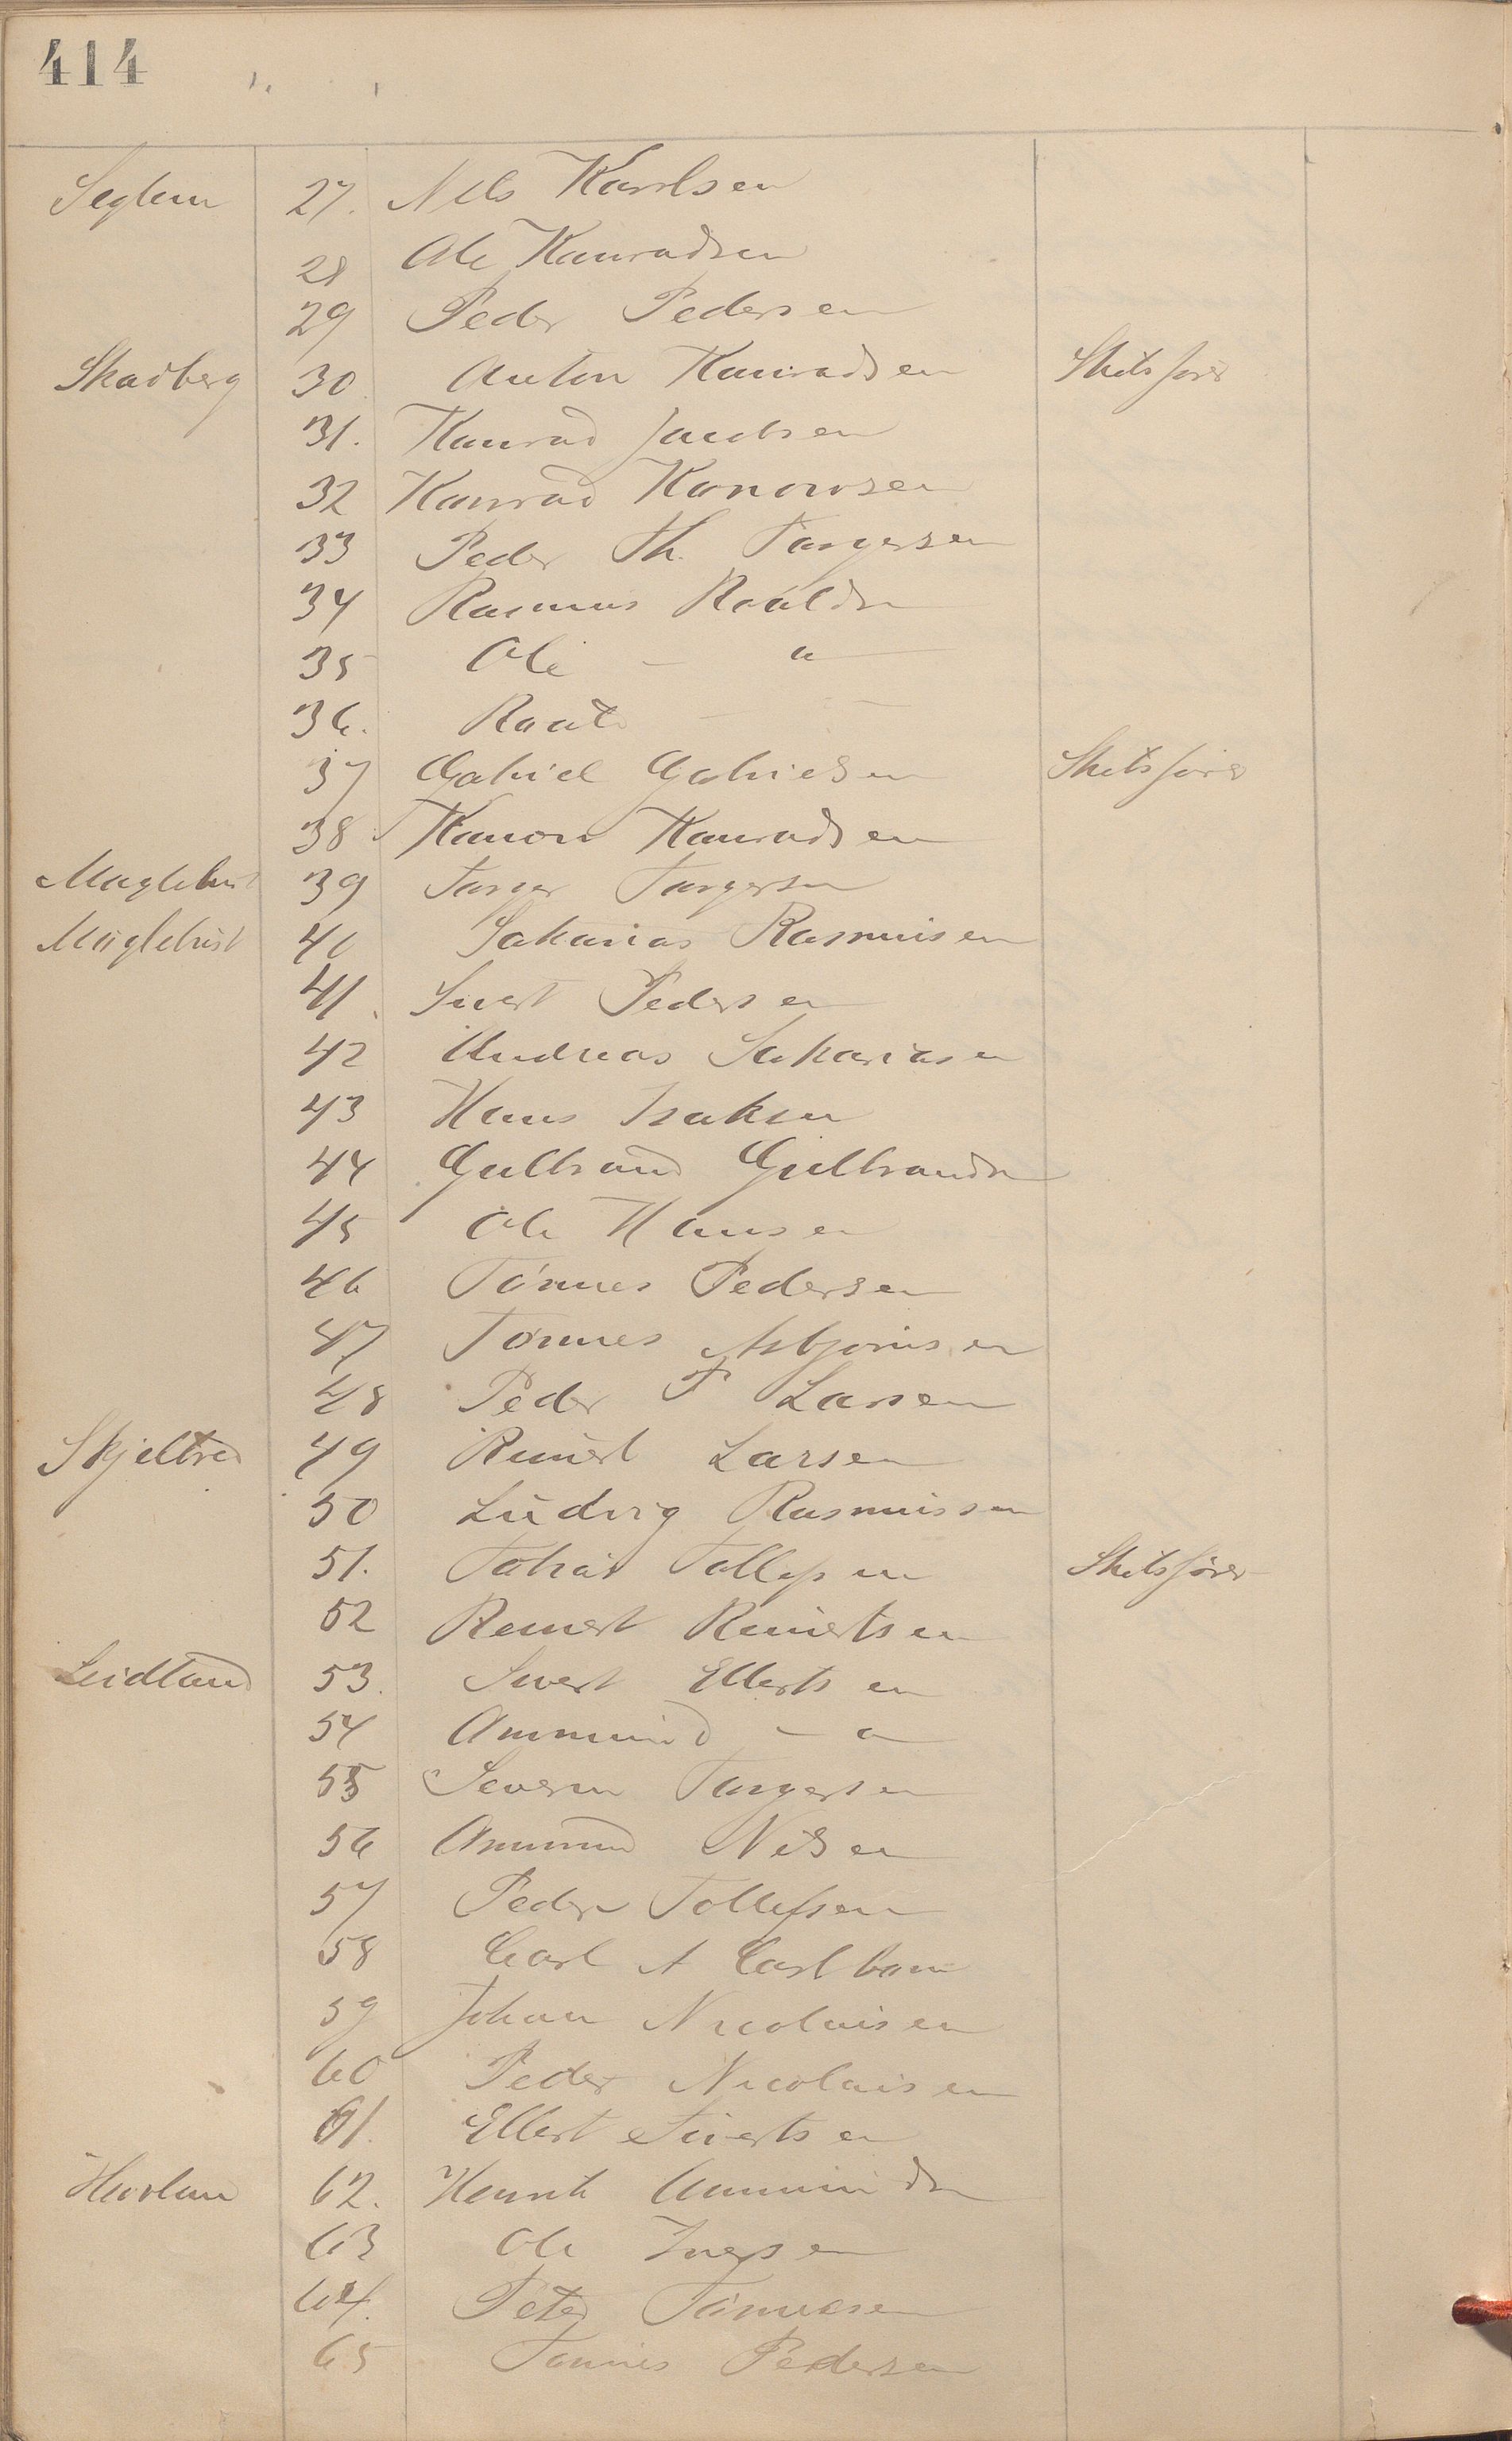 414
Seglem 27. Nils Karlsen
28 Ole Konradsen
29 Peder Pedersen
Skadberg 30 Anton Konradsen Skitsfører
31. Konrad Jacobsen
32 Konrad Kanowsen
33 Peder Th. Torgersen
34 Rasmus Roaldsn
35 Ole — " —
36. Roald — —
37 Gabriel Gabrielsen Skitsfører
38 Kanow Konradsen
Maglehust 39 Torger Torgersen
Maglehust 40 Sakarias Rasmusen
41. Sivert Pedersen
42 Andreas Sakariasen
43 Hans Isaksen
44 Gulbrand Gulbrandsn
45 Ole Hansen
46 Tønnes Pedersen
47 Tønnes Asbjørnsen
48 Peder P Larsen
Skjeltred 49 Reinert Larsen
50 Ludvig Rasmussen
51. Tobias Tollefsen Skitsfører
52 Reinert Reinertsen
Leidland 53. Sivert Ellertsen
54 Ammund — " —
55 Severin Torgersen
56 Ammund Nilsen
57 Peder Tollefsen
58 Carl A Carlbom
59 Johan Nicolaisen
60 Peder Nicolaisen
61. Ellert Sivertsen
Hovland 62. Henrik Ammundsn
63 Ole Iversen
64. Peter Tønnesen
65 Tønnes Pedersen